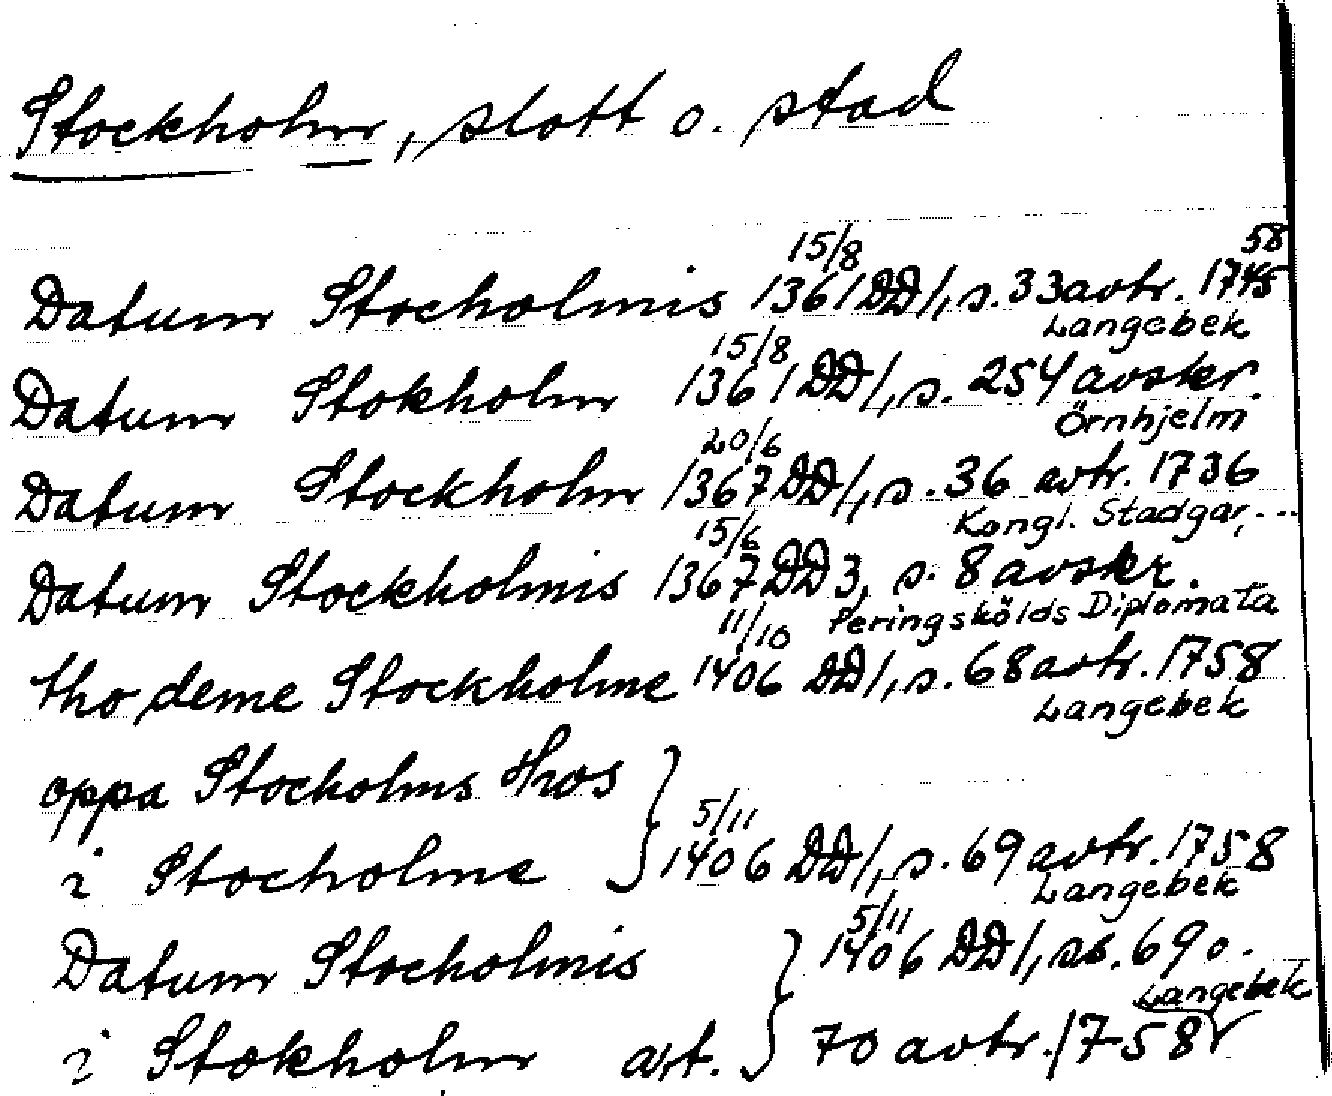 Stockholm, slott o. stad
Datum Stocholmis 15/8 1361 DD 1, s. 33 avtr. 1758 Langebek
Datum Stokholm 15/8 1361 DD 1, s. 254 avskr. Örnhjelm
Datum Stockholm 20/6 1367 DD 1, s. 36 avtr. 1736 Kongl. Stadgar, ...
Datum Stockholmis 15/6 1367 DD 3, s. 8 avskr. Peringskölds Diplomata
tho deme Stockholme 11/10 1406 DD 1, s. 68 avtr. 1758 Langebek
oppa Stocholms Hws
i Stocholme } 5/11 1406 DD 1, s. 69 avtr. 1758 Langebek
Datum Stocholmis } 5/11 1406 DD 1, ss. 69 o.
i Stokholm avt. 70 avtr. 1758 Langebek